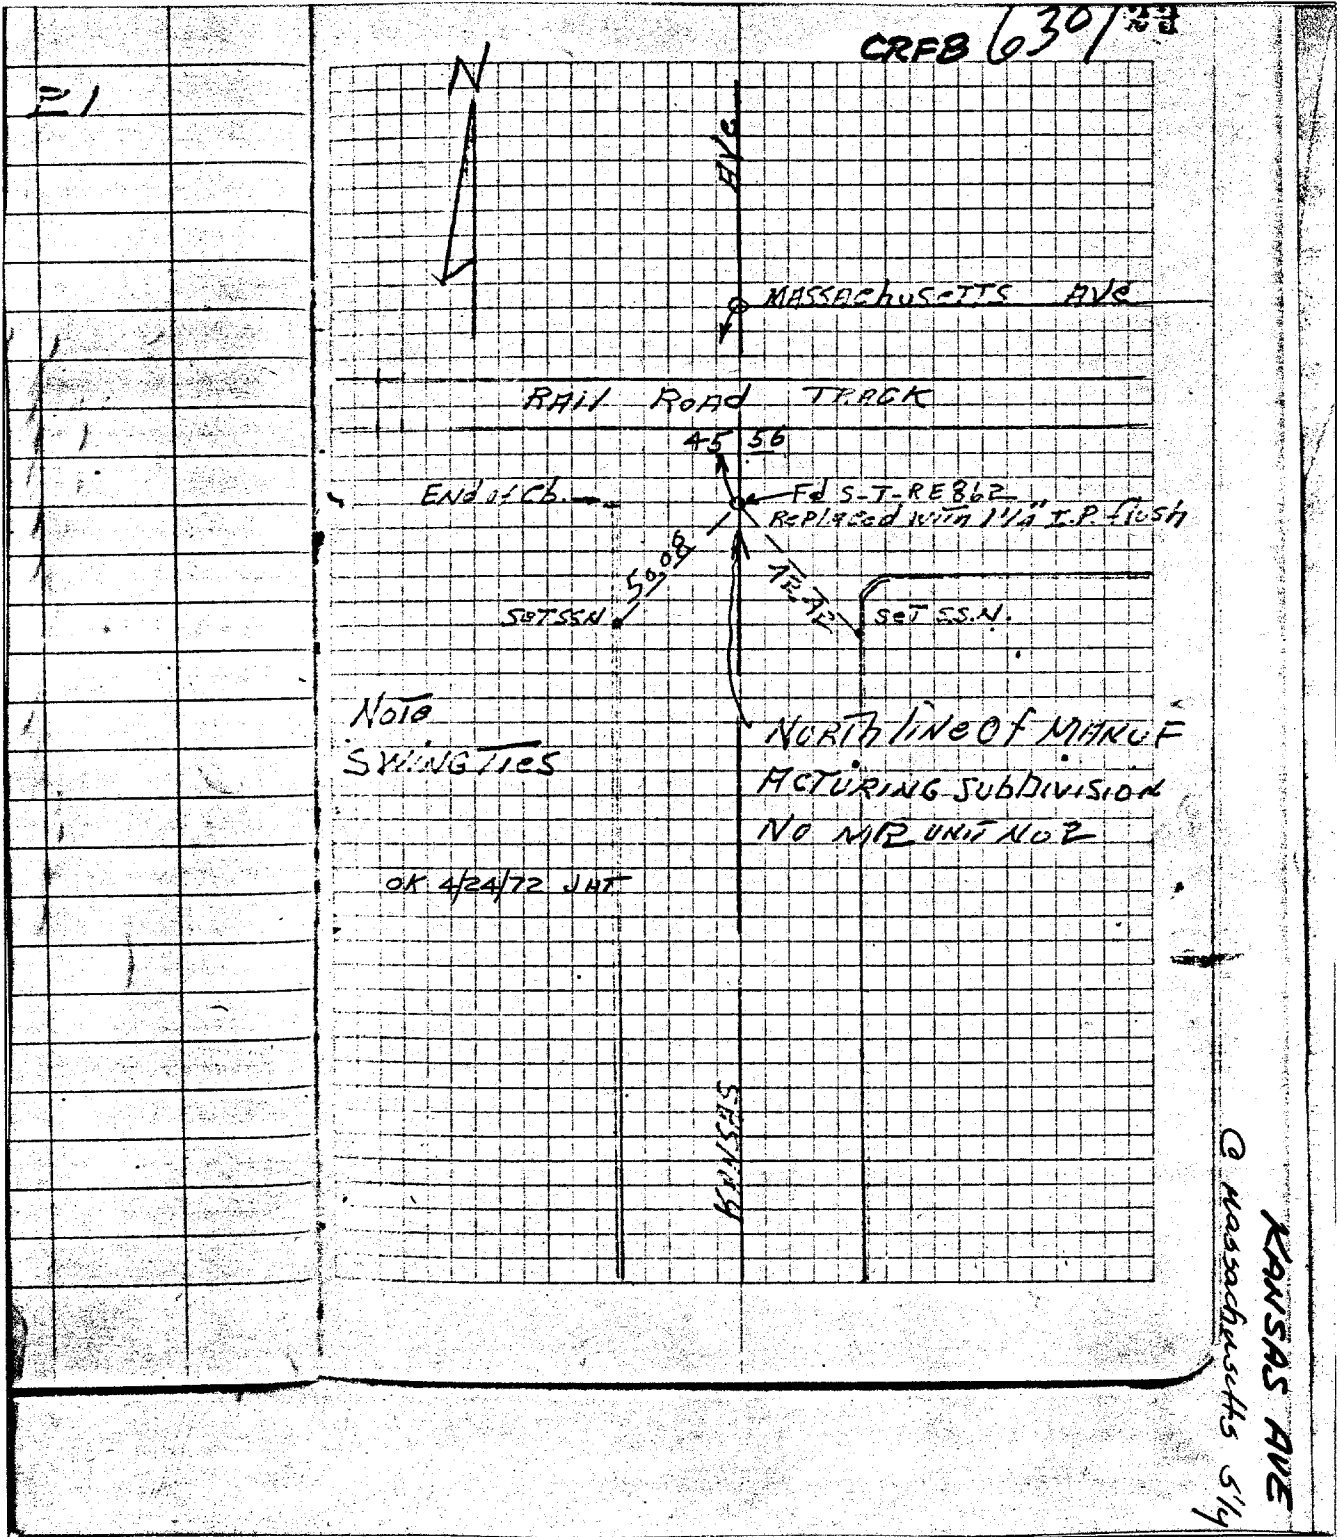 CRFB 6301
N
AVe
MASSAChuseTTS AVe
RAil RoAd TRACK
45 56
ENd of Cb.
Fd S-T-RE 862
RePlaced with 1 1/4" I.P. flush
50.06
SeT SSN
SeT S.S.N.
NoTe
SWING Ties
NORTh liNe Of MANUF
ACTURING SubDIVISION
No UNIT No 2
OK 4/24/72 JHT
KANSAS
KANSAS AVE
@ Massachusetts S'ly